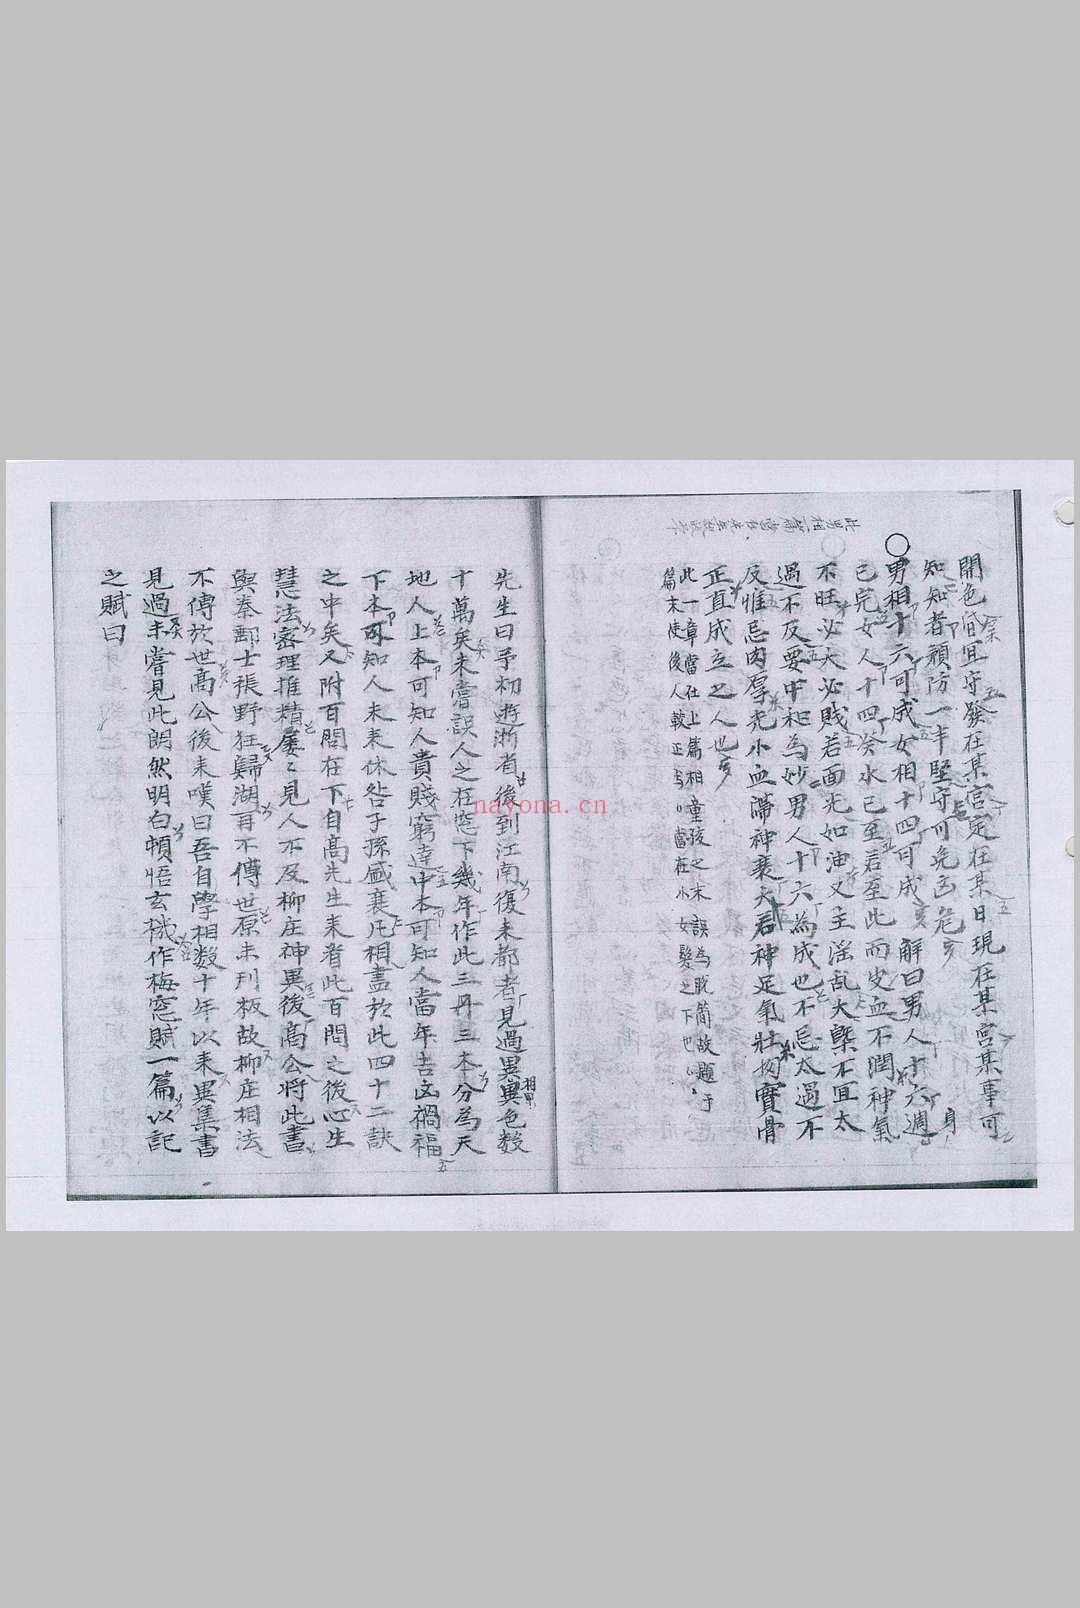 開色宜守發在某宮定在某日現在某宮某事可
知知者預防一年堅守可免凶危
男相十六可成女相十四可成 解曰男人十六週身
已完女人十四癸水已至若至此而皮血不潤神氣
不旺必大必賤若面光如油又主淫乱大槩不宜太
過不及要中和為妙男人十六為成也不忌太過不
反惟忌肉厚光小血滞神衰大君神足氣壯拗實骨
正直成立之人也
此一章當在上篇相童孩之末誤為脫簡故題于
篇末使後人較正当當在小女髮之下也
先生曰予初遊浙省後到江南復來都者見過異異色数
十萬矣未嘗誤人之在窓下幾年作此三冊三本分為天
地人上本可知人貴賤窮達中本可知人當年吉凶禍福
下本可知人未來休咎子孫盛衰凡相盡於此四十二訣
之中矣又附百問在下自高先生來者此百問之後心生
慧法密理推精屢〻見人不及柳庄神異後高公將此書
與秦鄠士張野狂歸湖再不傳世原未刊板故柳庄相法
不傳於世高公後來嘆曰吾自學相数十年以來異集書
見過未嘗見此朗然明白頓悟玄機作梅窓賦一篇以記
之賦曰
nayona.cn